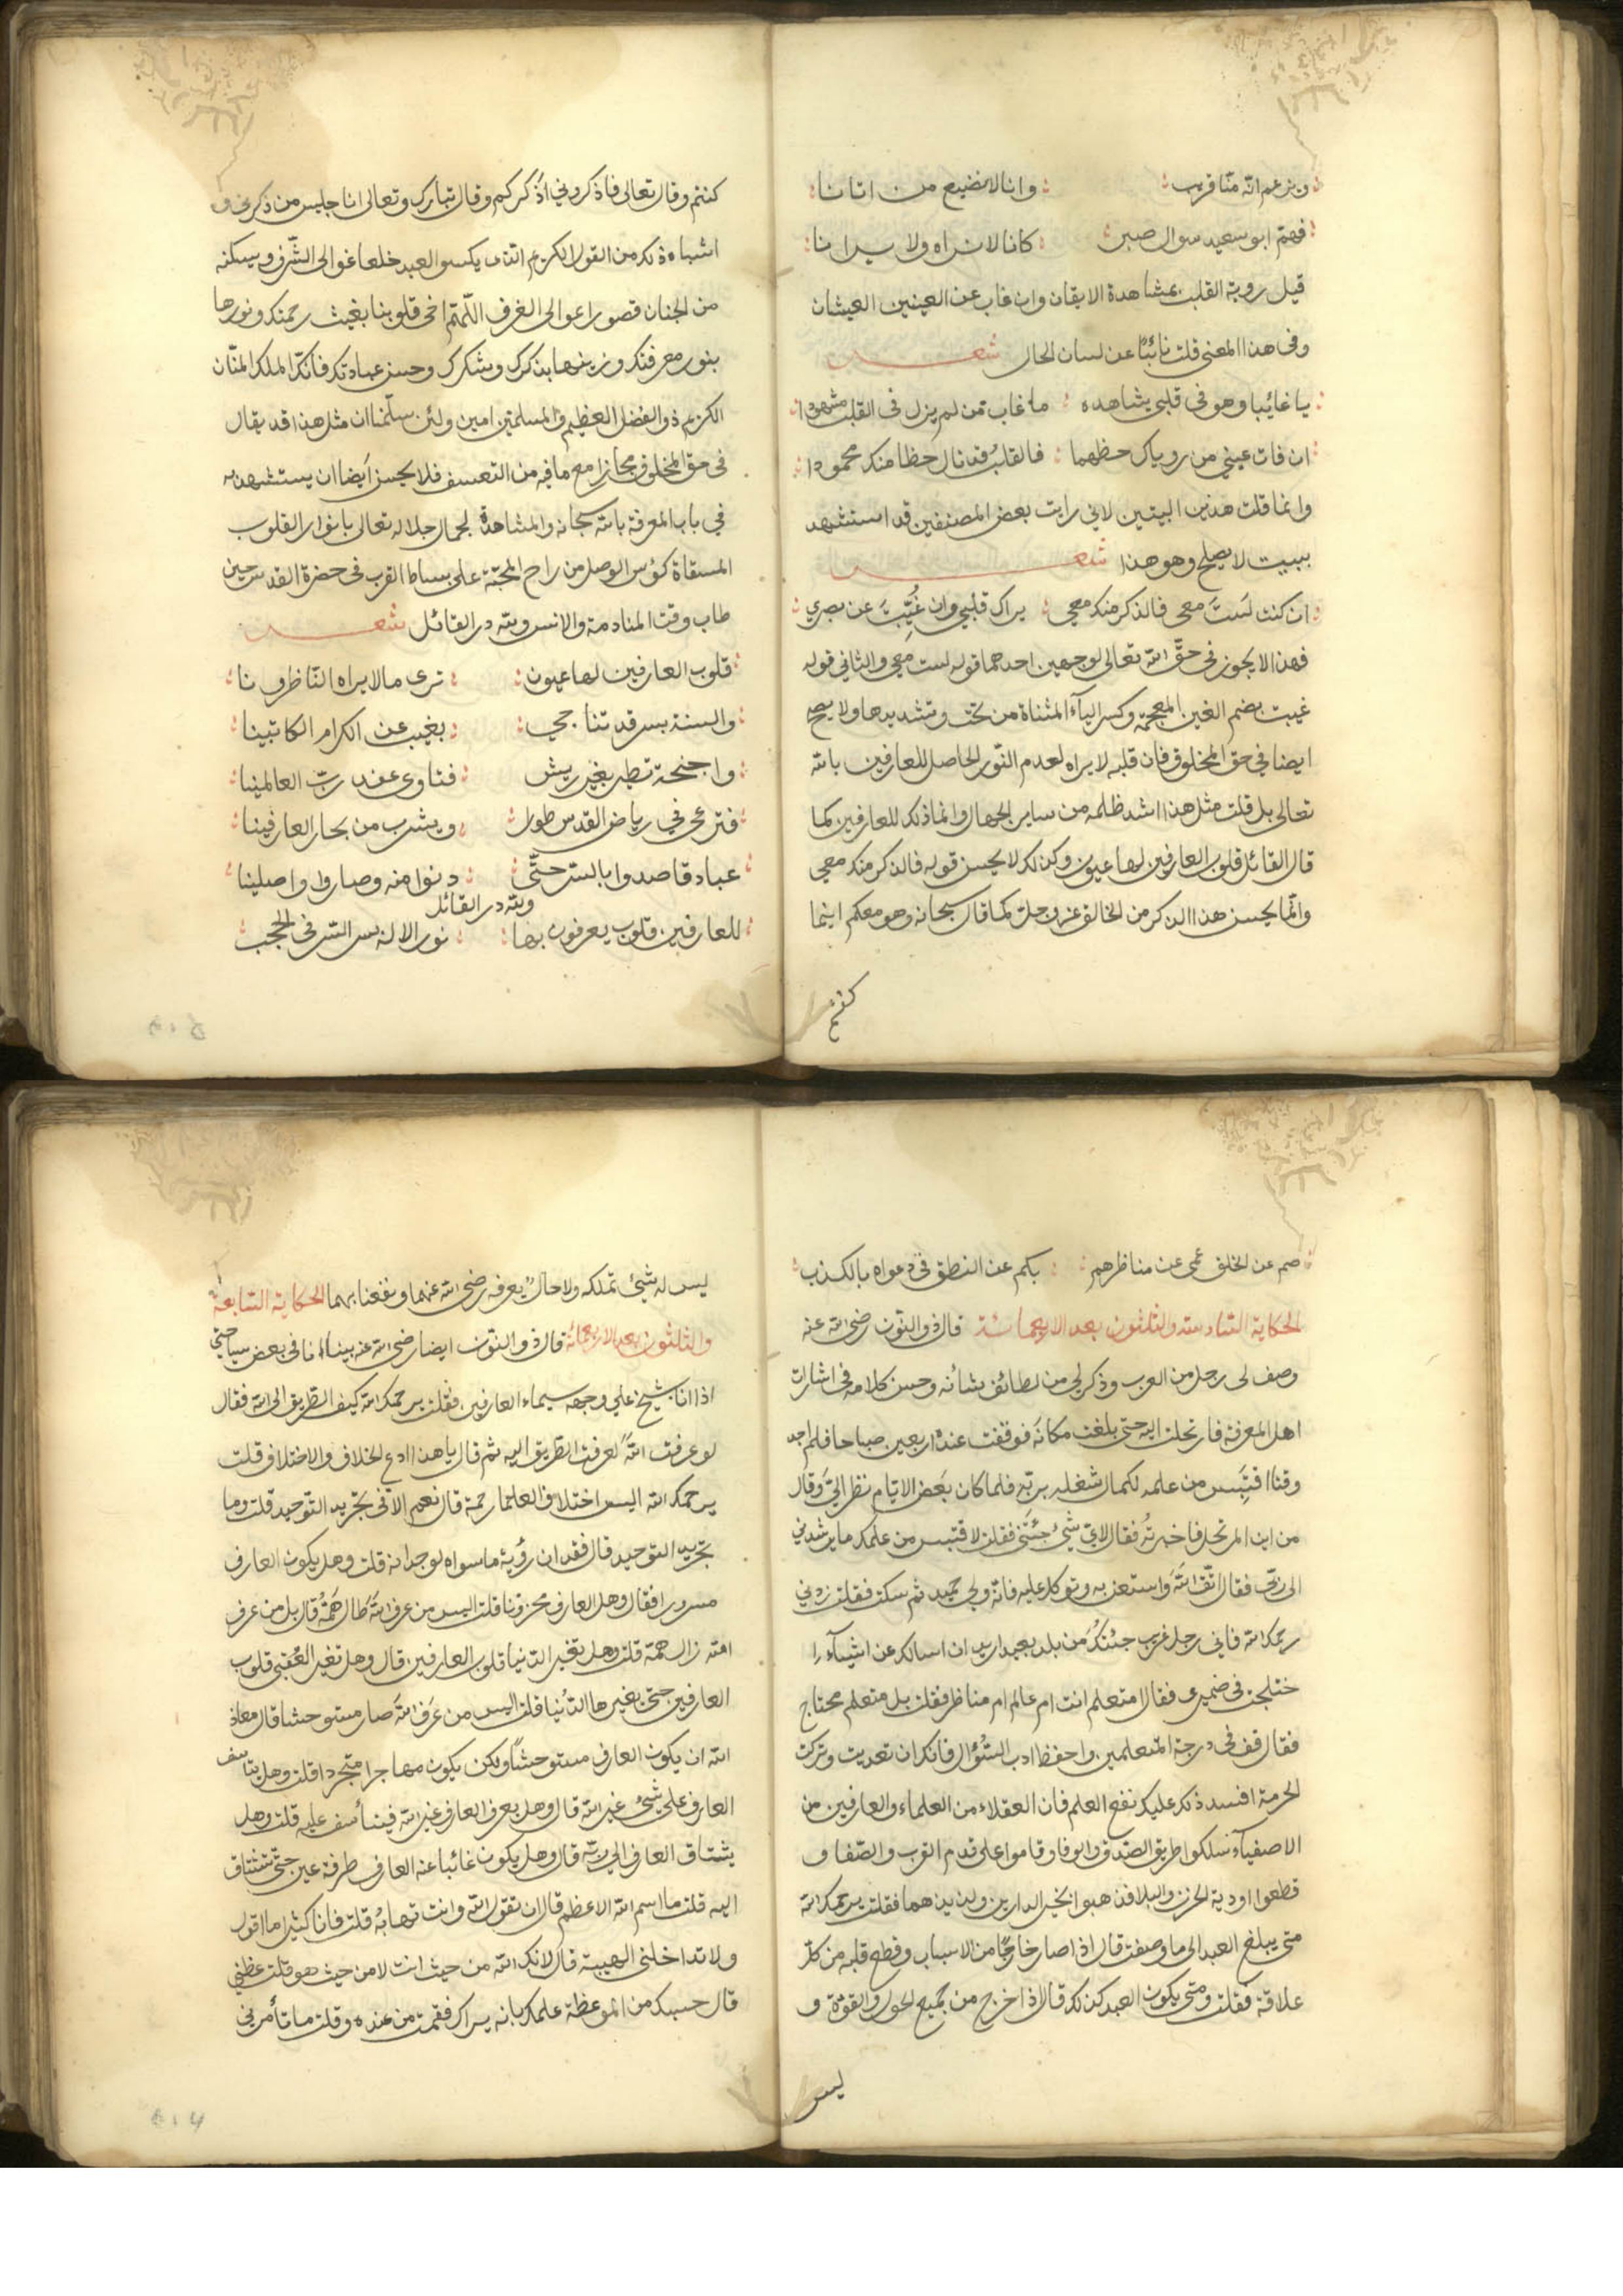 ويزعم انه منا قريب وانا لا نضيع من اتانا
فهم ابو سعيد سوال صبر كانا لا نراه ولا يرانا
قيل روية القلب بمشاهدة الايقان وان غاب عن العينين العيشان
وفي هذا المعنى قلت نائبا عن لسان الحال شعر
يا غائبا وهو في قلبي يشاهده ما غاب من لم يزل في القلب مشهودا
ان فات عيني من روياك حظهما فالقلب قد نال حظا منك محمودا
وانما قلت هذين البيتين لاني رايت بعض المصنفين قد استشهد
ببيت لا يصلح وهو هذا شعر
ان كنت لَستَ معي فالذكر منك معي يراك قلبي وان غُيِّبتَ عن بصري
فهذا لا يجوز في حقّ الله تعالى لوجهين احدهما قوله لست معي والثاني قوله
غيبت بضم الغين المعجمة وكسر اليآء المثناة من تحت وتشديدها ولا يصح
ايضا في حق المخلوق فان قلبه لا يراه لعدم النّور الحاصل للعارفين بالله
تعالى بل قلت مثل هذا اشد ظلمه من ساير الجهال وانما ذلك للعارفين كما
قال القائل قلوب العارفين لها عيون وكذلك لا يحسن قوله فالذكر منك معي
وانّما يحسن هذا الذكر من الخالق عز وجل كما قال سبحانه وهو معكم اينما
كنتم
كنتم وقال تعالى فاذكروني اذكركم وقال تبارك وتعالى انا جليس من ذكرني و
اشباه ذلك من القول الكريم الذي يكسو العبد خلعا غوالي الشّرف ويسكنه
من الجنان قصورا عوالي الغرف اللّهمّ احي قلوبنا بغيث رحمتك ونورها
بنور معرفتك وزينها بذكرك وشكرك وحسن عبادتك فانك الملك المنّان
الكريم ذو الفضل العظيم والمسلمين امين ولئن سلّمنا ان مثل هذا قد يقال
في حق المخلوق مجازا مع ما فيه من التعسف فلا يحسن ايضا ان يستشهد به
في باب المعرفة بالله سبحانه والمشاهدة لجمال جلاله تعالى بانوار القلوب
المسقاة كؤس الوصل من راح المحبّة على بساط القرب في حضرة القدس حين
طاب وقت المنادمة والانس ولله در القائل شعر
قلوب العارفين لها عيون ترى ما لا يراه النّاظرونا
والسنة بسر قد تناجي بغيب عن الكرام الكاتبينا
واجنحة تطير بغير ريش فتاوى عند ربّ العالمينا
فترعى في رياض القدس طورا ويشرب من بحار العارفينا
عباد قاصدوا بالسرّ حتّى دنوا منه وصاروا واصلينا
ولله در القائل
للعارفين قلوب يعرفون بها نور الاله بسر السّر في الحجب
صم عن الخلق عمي عن مناظرهم بكم عن النطق في دعواه بالكذب
الحكاية السّادسة والثلثون بعد الاربعمائة قال ذو النون رضي الله عنه
وصف لي رجل من العرب وذكر لي من لطائف شانه وحسن كلامه في اشارات
اهل المعرفة فارتحلت اليه حتى بلغت مكانه فوقفت عنده اربعين صباحا فلم اجد
وقتا اقتبس من علمه لكمال شغله بربّه فلما كان بعض الايّام نظر اليّ وقال
من اين المرتحل فاخبرتُه فقال لايّ شئ جئتَني فقلت لاقتبس من علمك ما يرشدني
الى ربّي فقال اتّق الله واستعن به وتوكل عليه فانّه وليّ حميد ثم سكت فقلت زدني
رحمك الله فاني رجل غريب جئتكَ من بلد بعيد اريد ان اسالك عن اشيآء ا
ختلجت في ضميري فقال امتعلم انت ام عالم ام مناظر فقلت بل متعلم محتاج
فقال قف في درجة المتعلمين واحفظ ادب السّؤال فانك ان تعديت وتركت
الحرمة افسد ذلك عليك نفع العلم فان العقلاء من العلماء والعارفين من
الاصفيآء سلكوا طريق الصّدق والوفا وقاموا على قدم القرب والصّفا و
قطعوا اودية الحزن والبلا فذهبوا بخير الدارين ولذيذهما فقلت يرحمك الله
متى يبلغ العبد الى ما وصفت قال اذا صار خارجًا من الاسباب وقطع قلبه من كلّ
علاقة فقلت ومتى يكون العبد كذلك قال اذا خرج من جميع الحول والقوة و
ليس
ليس له شئ تملكه ولا حال يعرفه رضي الله عنهما ونفعنا بهما الحكاية السّابعة
والثلثون بعد الاربعمائة قال ذو النّون ايضا رضي الله عنه بينا انا في بعض سياحتي
اذا انا بشيخ علي وجهه سيماء العارفين فقلت يرحمك الله كيف الطريق الى الله فقال
لو عرفت الله لعرفت الطريق اليه ثم قال يا هذا ادع الخلاف والاختلاف قلت
يرحمك الله اليس اختلاف العلما رحمة قال نعم الا في تجريد التّوحيد قلت وما
تجريد التوحيد قال فقدان رؤية ما سواه لوجدانه قلت وهل يكون العارف
مسرورا فقال وهل العارف محزونا قلت اليس من عرف الله طال همّهُ قال بل من عرف
الله زال همه قلت وهل تغير الدّنيا قلوب العارفين قال وهل تغير العُقبى قلوب
العارفين حتى يغيرها الدُّنيا قلت اليس من عَرَف الله صار مستوحشا قال معاذ
الله ان يكون العارف مستوحشًا ولكن يكون مهاجرا متجردا قلت وهل يتاسف
العارف على شئ غير الله قال وهل يعرف العارف غير الله فيتأسف عليه قلت وهل
يشتاق العارف الى ربّه قال وهل يكون غائبا عنه العارف طرفة عين حتّى تشتاق
اليه قلت ما اسم الله الاعظم قال ان تقول الله وانت تهابهُ قلت فانا كثيرا ما اقول
ولا تداخلني الهيبة قال لانك الله من حيث انت لا من حيث هو قلت عظني
قال حسبك من الموعظة علمك بانه يراك فقمت من عنده وقلت ما تأمرني